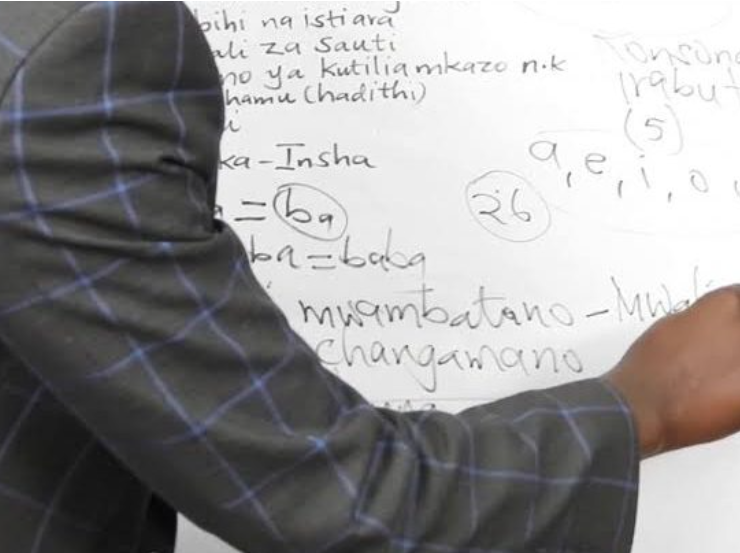 bihi na istiara
ali za Sauti
no ya kutilia mkazo n.k
hamu (hadithi)
i
ka - Insha
= ba
26
ba = baba
mwambatano - Mwal
Changamano
Konsona
Irabu
(5)
a, e, i, o,